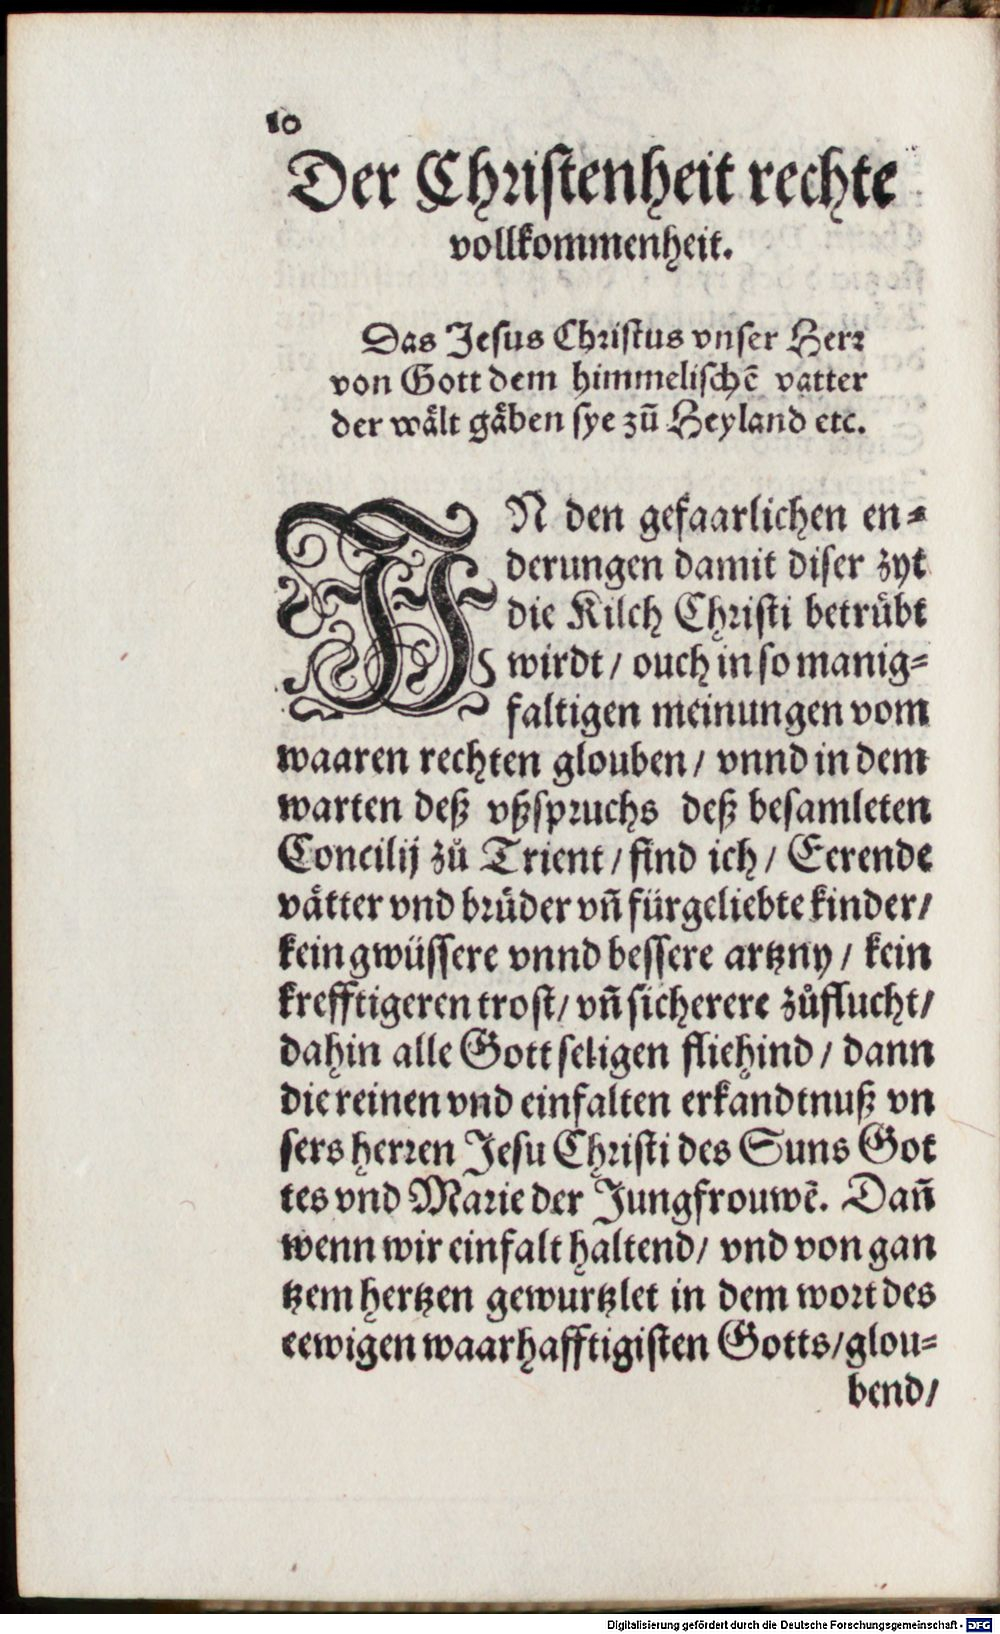 10
Der Christenheit rechte
vollkommenheit.
Das Jesus Christus vnser Herr
von Gott dem himmelischē vatter
der wält gäben sye zů Heyland etc.
IN den gefaarlichen en=
derungen damit diser zyt
die Kilch Christi betrübt
wirdt / ouch in so manig=
faltigen meinungen vom
waaren rechten glouben / vnnd in dem
warten deß vßspruchs deß besamleten
Concilij zů Trient / find ich / Eerende
vätter vnd brüder vñ fürgeliebte kinder /
kein gwüssere vnnd bessere artzny / kein
krefftigeren trost / vñ sicherere zůflucht /
dahin alle Gottseligen fliehind / dann
die reinen vnd einfalten erkandtnuß vn
sers herren Jesu Christi des Suns Got
tes vnd Marie der Jungfrouwē. Dañ
wenn wir einfalt haltend / vnd von gan
tzem hertzen gewurtzlet in dem wort des
eewigen waarhafftigisten Gotts / glou=
bend /
Digitalisierung gefördert durch die Deutsche Forschungsgemeinschaft - DFG